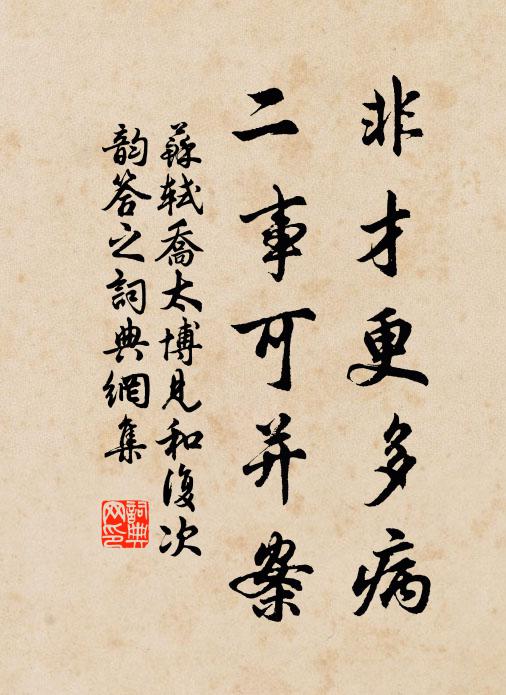 非才更多病
二事可并案
蘇軾喬太博見和復次
韵答之詞典網集
詞典
网印